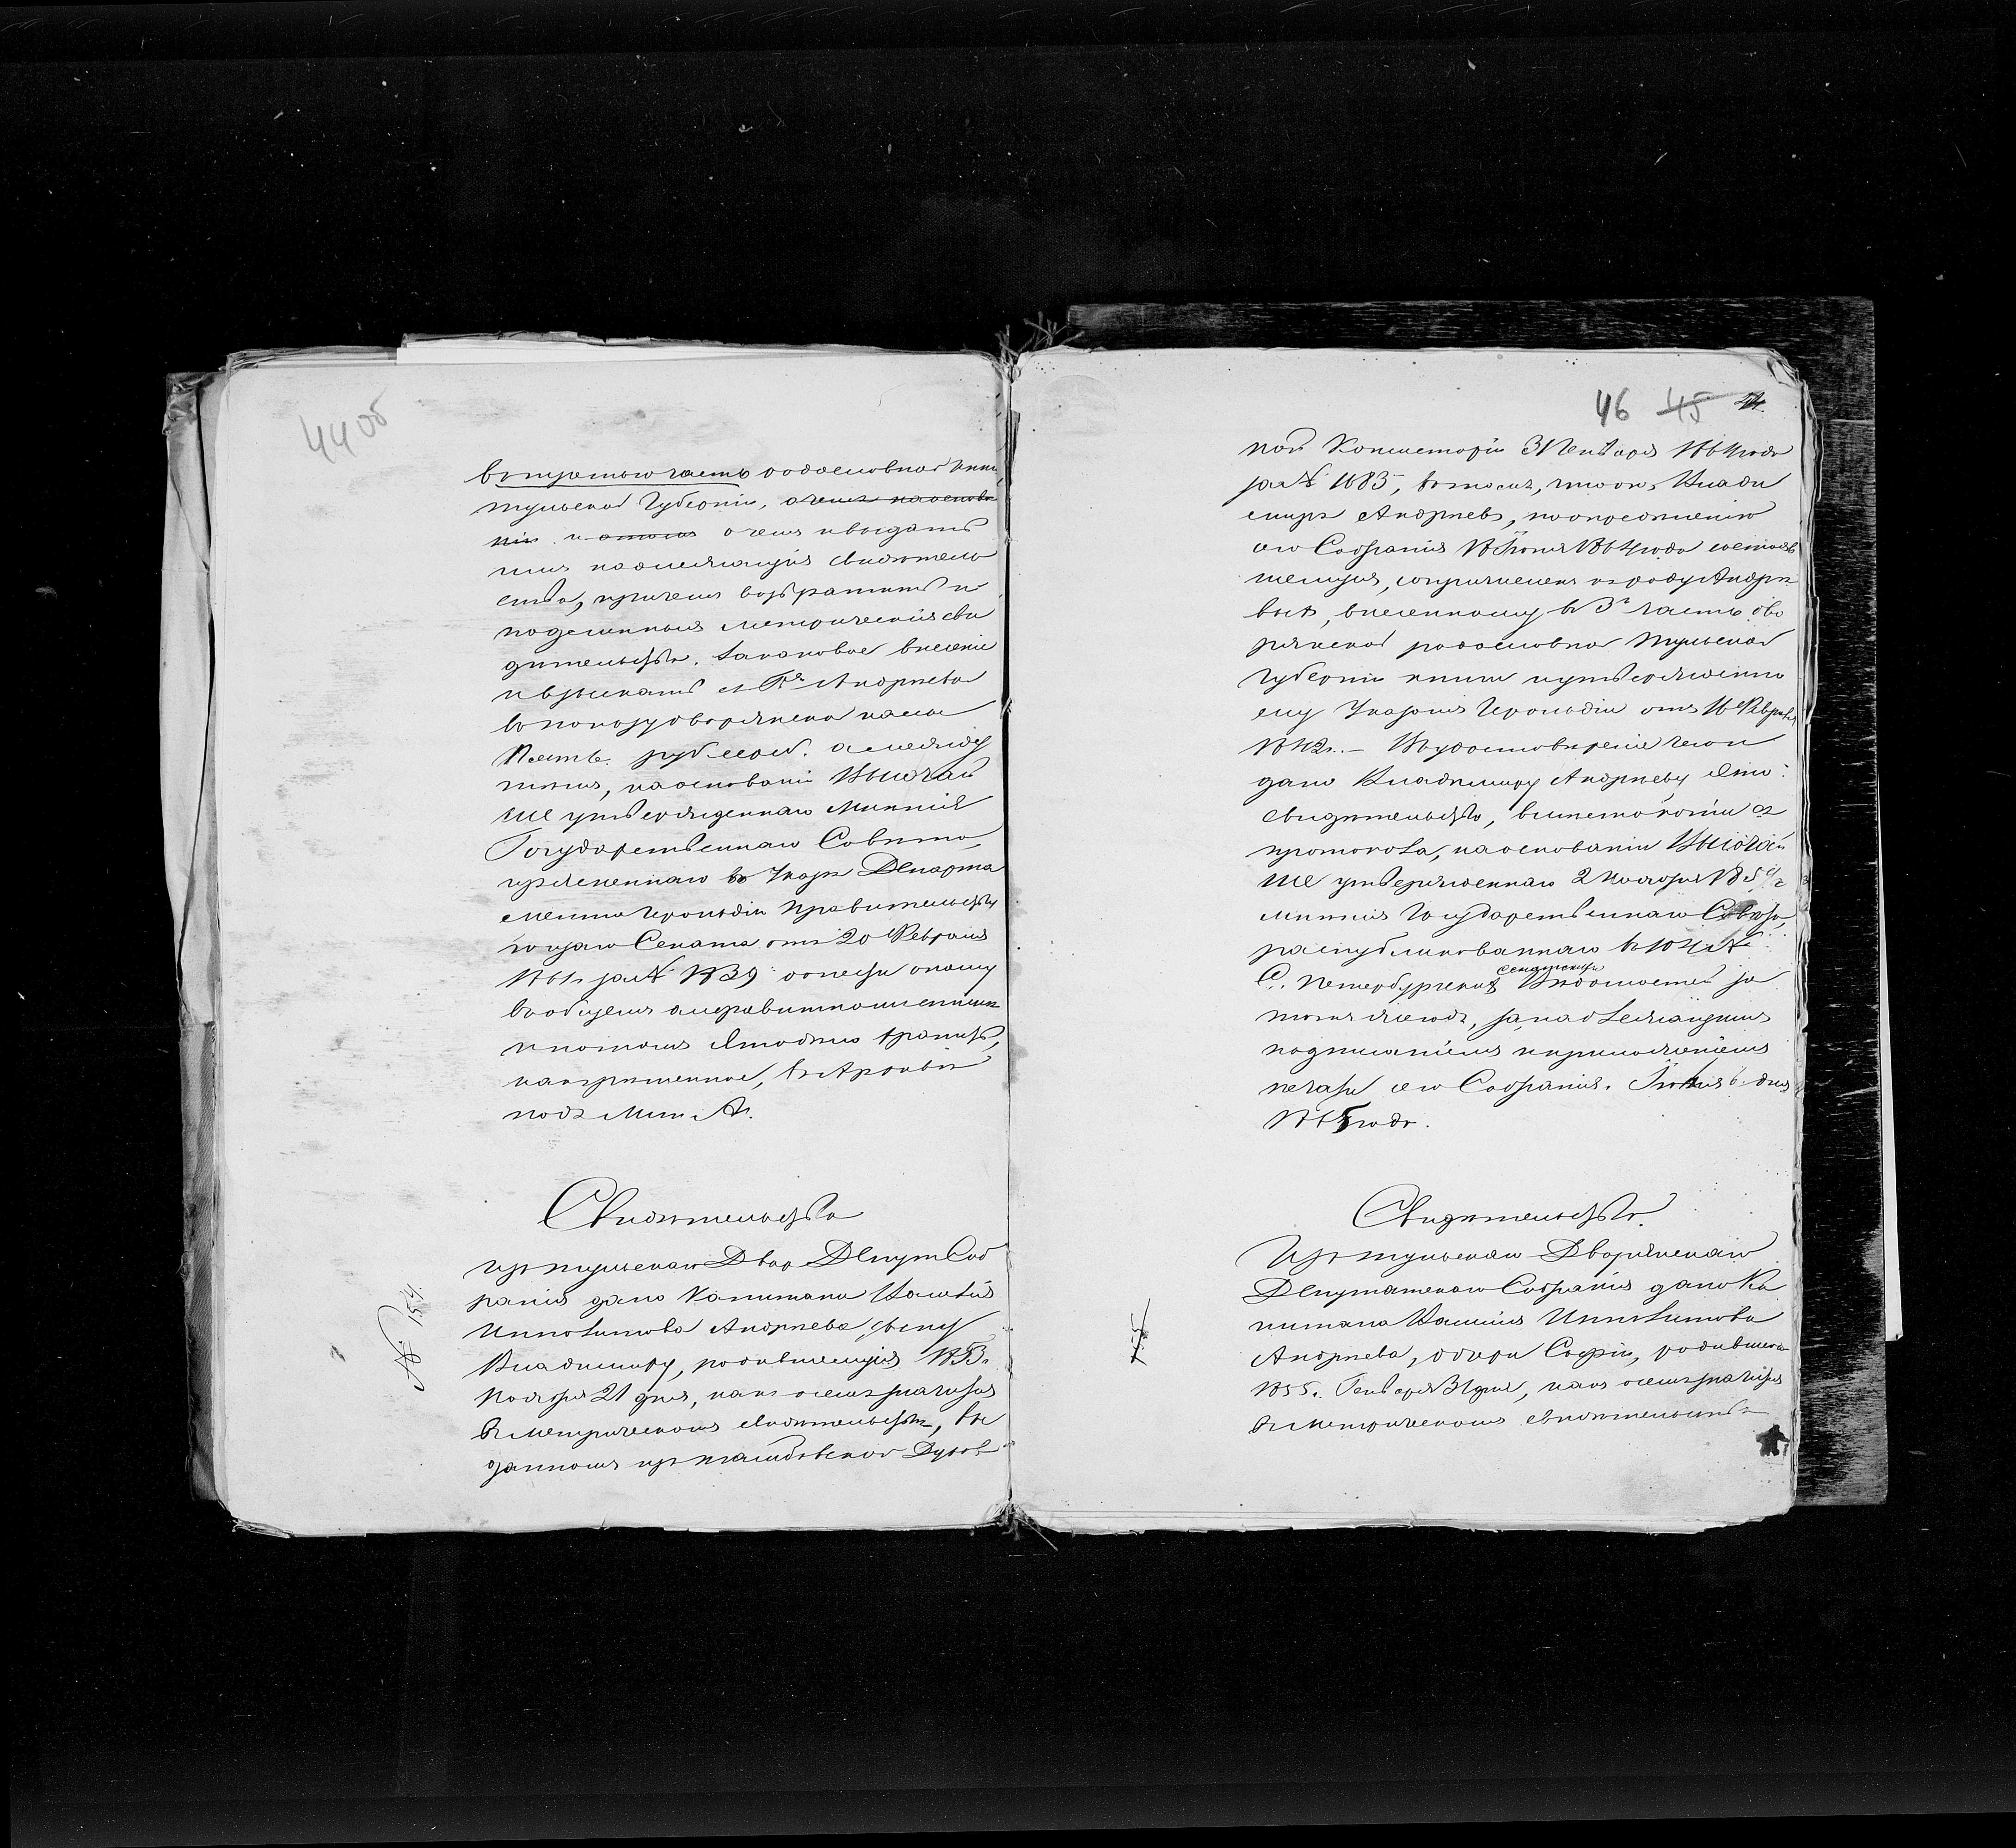 44 об
въ третью часть родословной книги
Тульской Губерніи, о чемъ на основа
ніи и отомъ о чемъ и выдать
имъ надлежащія свидѣтель
ства, причемъ возвратить и
подлинныя метрическія сви
дѣтельства. За таковое внесеніе
и взыскать съ Гг Андреева
въ пользу дворянской казны
шесть рублей. а между
тѣмъ, на основаніи Высочай
ше утвержденнаго Мнѣнія
Государственнаго Совѣта,
изъясненнаго въ Указѣ Департа
мента Герольдіи Правительству
ющаго Сената отъ 20 Февраля
1861 за № 1839 донести оному
въ общемъ алфавитномъ спискѣ
и потомъ дѣло это хранить,
какъ рѣшенное, въ Архивѣ
подъ лит. А.
Свидѣтельство
№ 154.
Изъ Тульскаго Двор Депут Соб
ранія дано Капитана Василія
Ипполитова Андреева сыну
Владиміру, родившемуся 1853.
Ноября 21 дня, какъ о семъ значится
въ метрическомъ свидѣтельствѣ, вы
данномъ изъ Тамбовской Духов
46 45 44
ной Консисторіи 31 Генваря 1864 года
за № 1683, въ томъ, что онъ, Влади
миръ Андреевъ, по опредѣленію
сего Собранія 18 Іюня 1864 года состояв
шемуся, сопричисленъ къ роду Андрее
выхъ, внесенному въ 3ю часть дво
рянской родословной Тульской
Губерніи книги и утвержденно
му Указомъ Герольдіи отъ 16 Февраля
1842 г. – Въ удостовѣреніе чего и
дано Владиміру Андрееву это
свидѣтельство, вмѣсто копіи съ
протокола, на основаніи Высочай
ше утвержденнаго 2 Ноября 185
мнѣнія Государственнаго Совѣта,
распубликованнаго въ 104 №
С. Петербургскихъ Сенатскихъ Вѣдомостей за
тотъ же годъ, за надлежащимъ
подписаніемъ и приложеніемъ
печати сего Собранія. Іюня 6 дня
1865 года.
Свидѣтельство.
155
Изъ Тульскаго Дворянскаго
Депутатскаго Собранія дано Ка
питана Василія Ипполитова
Андреева, дочери Софіи, родившейся
1855. Генваря 31 дня, какъ о семъ значится
въ метрическомъ свидѣтельствѣ